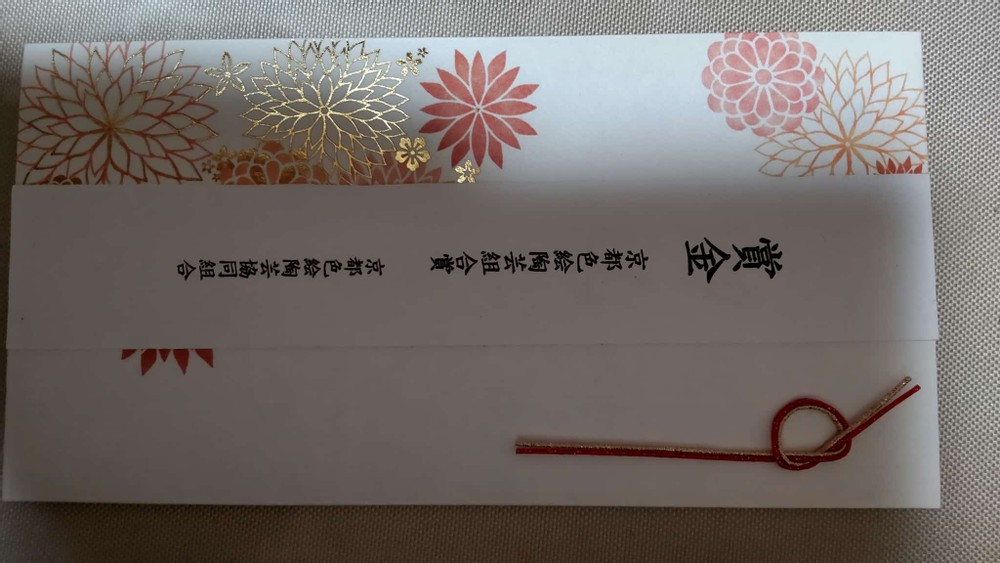 賞金
京都色絵陶芸組合賞
京都色絵陶芸協同組合